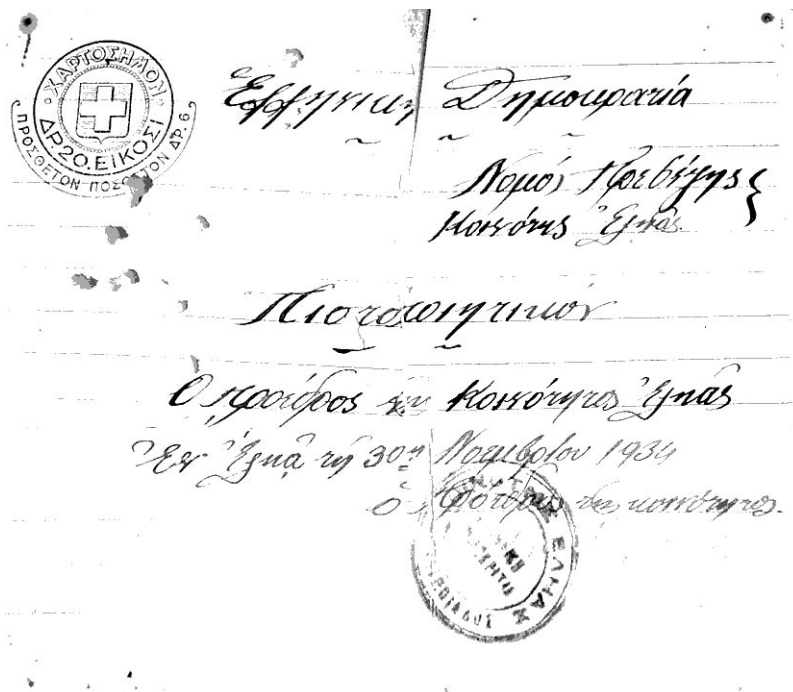 ΧΑΡΤΟΣΗΜΟΝ
ΔΡ.20.ΕΙΚΟΣΙ
ΠΡΟΣΘΕΤΟΝ ΠΟΣΟΣΤΟΝ ΔΡ.6
Ἑλληνικὴ Δημοκρατία
Νομός Πρεβέζης
Κοινότης Ἐληᾶς
Πιστοποιητικόν
Ὁ πρόεδρος τῆς Κοινότητος Ἐληᾶς
Ἐν Ἐληᾷ τῇ 30ῃ Νοεμβρίου 1934
Ὁ Πρόεδρος τῆς κοινότητος.
ΕΛΗΑΣ